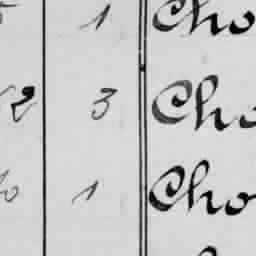 1 Cho
2 3 Cho
1 Cho